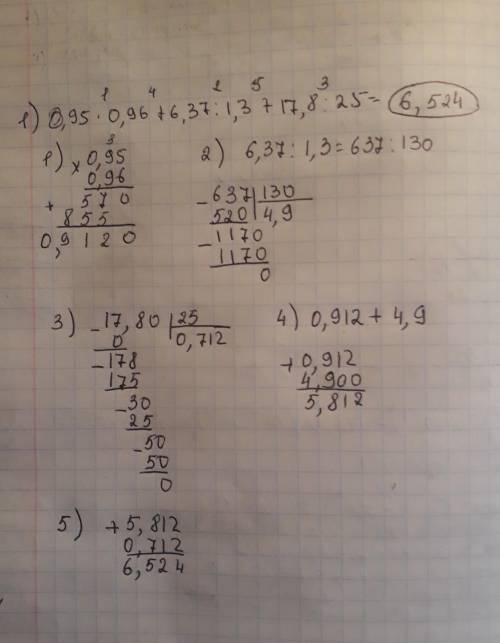 1 4 2 5 3
1) 0,95 · 0,96 + 6,37 : 1,3 + 17,8 : 25 = 6,524
1) × 0,95
3
0,96
+ 570
855
0,9120
2) 6,37 : 1,3 = 637 : 130
- 637 | 130
520 4,9
- 1170
1170
0
3) - 17,80 | 25
0 0,712
- 178
175
- 30
25
- 50
50
0
4) 0,912 + 4,9
+ 0,912
4,900
5,812
5) + 5,812
0,712
6,524